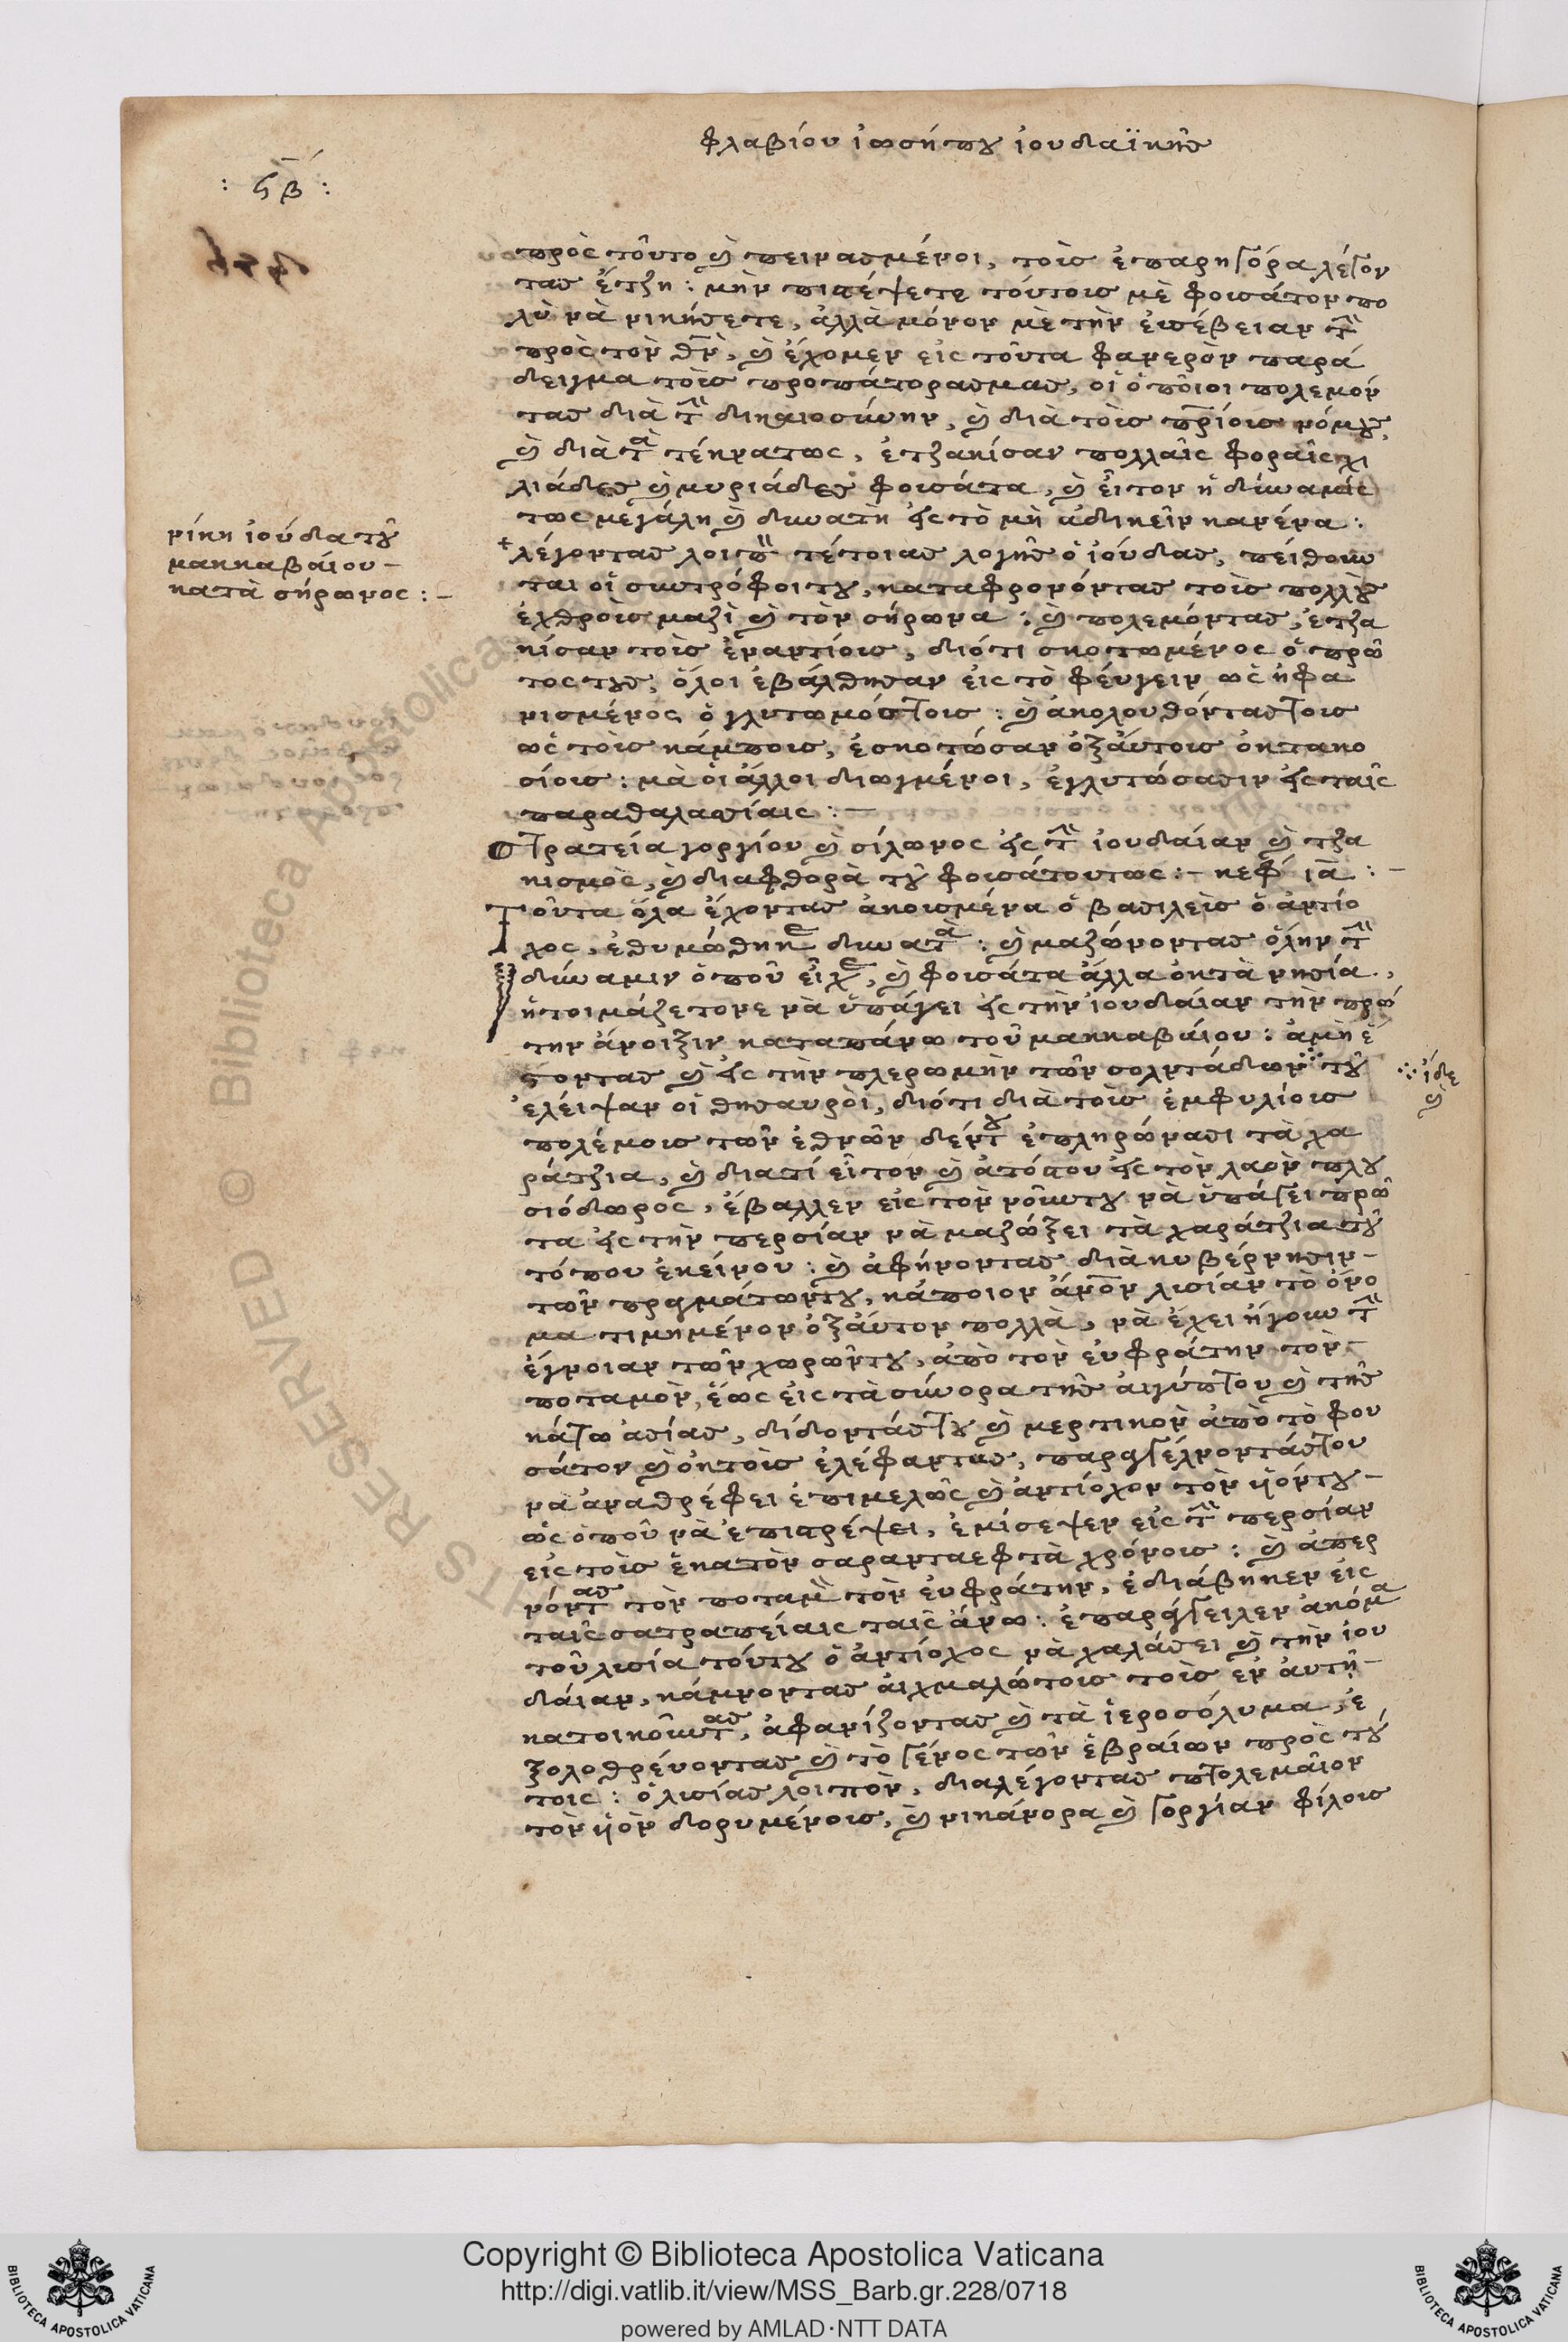 φλαβίου ἰωσήπου ἰουδαϊκῆς
: ϛβ :
πρὸς τοῦτο καὶ πεινασμένοι, τοὶς ἐπαρηγόρα λέγον
τας ἔτζη : μὴν πιστέψετε τούτοις μὲ φουσάτον πο
λὺ νὰ νικήσετε, ἀλλὰ μόνον μὲ τὴν εὐσέβειαν τὴν
πρὸς τὸν θν, καὶ ἔχομεν εἰς τοῦτα φανερὸν παρά
δειγμα τοὶς προπάτορασμας, οἱ ὁποῖοι πολεμόν
τας διὰ τὴν δικαιοσύνην, καὶ διὰ τοὶς πρίους νόμους,
καὶ διὰ τὰ τέκνατως, ἐτζακίσαν πολλαῖς φοραῖς χι
λιάδες καὶ μυριάδες φουσάτα, καὶ εἶτον ἡ δύναμίς
τως μεγάλη καὶ δυνατὴ εἰς τὸ μὴ ἀδικεῖν κανένα :
νίκη ἰούδα τοῦ
μακκαβαίου –
κατὰ σήρωνος : –
+ λέγοντας λοιπὸν τέτοιας λογῆς ὁ ἰούδας, πείθουν
ται οἱ συντρόφοι του, καταφρονόντας τοὶς πολλοὺς
ἐχθροὶς μαζὶ καὶ τὸν σήρωνα : καὶ πολεμόντας, ἐτζα
κίσαν τοὶς ἐναντίοις, διότι σκοτωμένος ὁ πρῶ
τος τους, ὅλοι ἐβάλθησαν εἰς τὸ φεύγειν ὡς ἠφα
νισμένος ὁ γλυτωμόστοις : καὶ ἀκολουθόνταστοις
ὡς τοὶς κάμποις, ἐσκοτώσαν ὀξαύτοις ὀκτακο
σίοις : μὰ οἱ ἄλλοι διωγμένοι, ἐγλυτώσασιν εἰς ταῖς
παραθαλασσίαις : –
στρατεία γοργίου καὶ σίλωνος εἰς τὴν ἰουδαίαν καὶ τζα
κισμὸς, καὶ διαφθορὰ τοῦ φουσάτουτως : – κεφ ια : –
Τοῦτα ὅλα ἔχοντας ἀκουσμένα ὁ βασιλεὺς ὁ ἀντίο
χος, ἐθυμώθηκε δυνατὰ : καὶ μαζώνοντας ὅλην τὴν
δύναμιν ὁποῦ εἶχε, καὶ φουσάτα ἄλλα ὀκτὰ νησία,
ἡτοιμάζετονε νὰ ὑπάγει εἰς τὴν ἰουδαίαν τὴν πρώ
την ἄνοιξιν καταπάνω τοῦ μακκαβαίου : ἀμὴ ἔ
στοντας καὶ εἰς τὴν πλερωμὴν τῶν σολντάδων τοῦ
∴ ἰδὲ
καὶ
ἐλείψαν οἱ θησαυροὶ, διότι διὰ τοὶς ἐμφυλίοις
πολέμοις τῶν ἐθνῶν δέντου ἐπληρώνασι τὰ χα
ράτζια, καὶ διατί εἶτον καὶ ἀτόπου εἰς τὸν λαὸν πλου
σιόδωρος, ἔβαλλεν εἰς τὸν νοῦντου νὰ ὑπάγει πρῶ
τα εἰς τὴν περσίαν νὰ μαζώξει τὰ χαράτζια τοῦ
τόπου ἐκείνου : καὶ ἀφήνοντας διὰ κυβέρνησιν –
τῶν πραγμάτωντου, κάποιον ἄνον λισίαν τὸ ὄνο
μα τιμημένον ὀξαύτον πολλὰ, νὰ ἔχει ἤγουν τὴν
ἔγνοιαν τῶν χωρῶντου, ἀπὸ τὸν εὐφράτην τὸν –
ποταμὸν, ἕως εἰς τὰ σύνορα τῆς αἰγύπτου καὶ τῆς
κάτω ἀσίας, δίδοντάστου καὶ μερτικὸν ἀπὸ τὸ φου
σάτον καὶ ὀκτοὶς ἐλέφαντας, παραγγέλνοντάστου
νὰ ἀναθρέφει ἐπιμελῶς καὶ ἀντίοχον τὸν υἱόντου –
ὡς ὁποῦ νὰ ἐπιστρέψει, ἐμίσεψεν εἰς τὴν περσίαν
εἰς τοὶς ἑκατὸν σαρανταεφτὰ χρόνοις : καὶ ἀπερ
νόντας τὸν ποταμὸν τὸν εὐφράτην, ἐδιάβηκεν εἰς
ταῖς σατραπείαις ταῖς ἄνω : ἐπαράγγειλεν ἀκόμα
τοῦ λισία τούτου ὁ ἀντίοχος νὰ χαλάσει καὶ τὴν ἰου
δαίαν, κάμνοντας αἰχμαλώτοις τοὶς ἐν αὐτῇ –
κατοικοῦντας, ἀφανίζοντας καὶ τὰ ἱεροσόλυμα, ἐ
ξολοθρεύοντας καὶ τὸ γένος τῶν ἑβραίων πρὸς τού
τοις : ὁ λισίας λοιπὸν, διαλέγοντας πτολεμαῖον
τὸν υἱὸν δορυμένοις, καὶ νικάνορα καὶ γοργίαν φίλοις
BIBLIOTECA APOSTOLICA VATICANA
Copyright © Biblioteca Apostolica Vaticana
http://digi.vatlib.it/view/MSS_Barb.gr.228/0718
powered by AMLAD·NTT DATA
BIBLIOTECA APOSTOLICA VATICANA